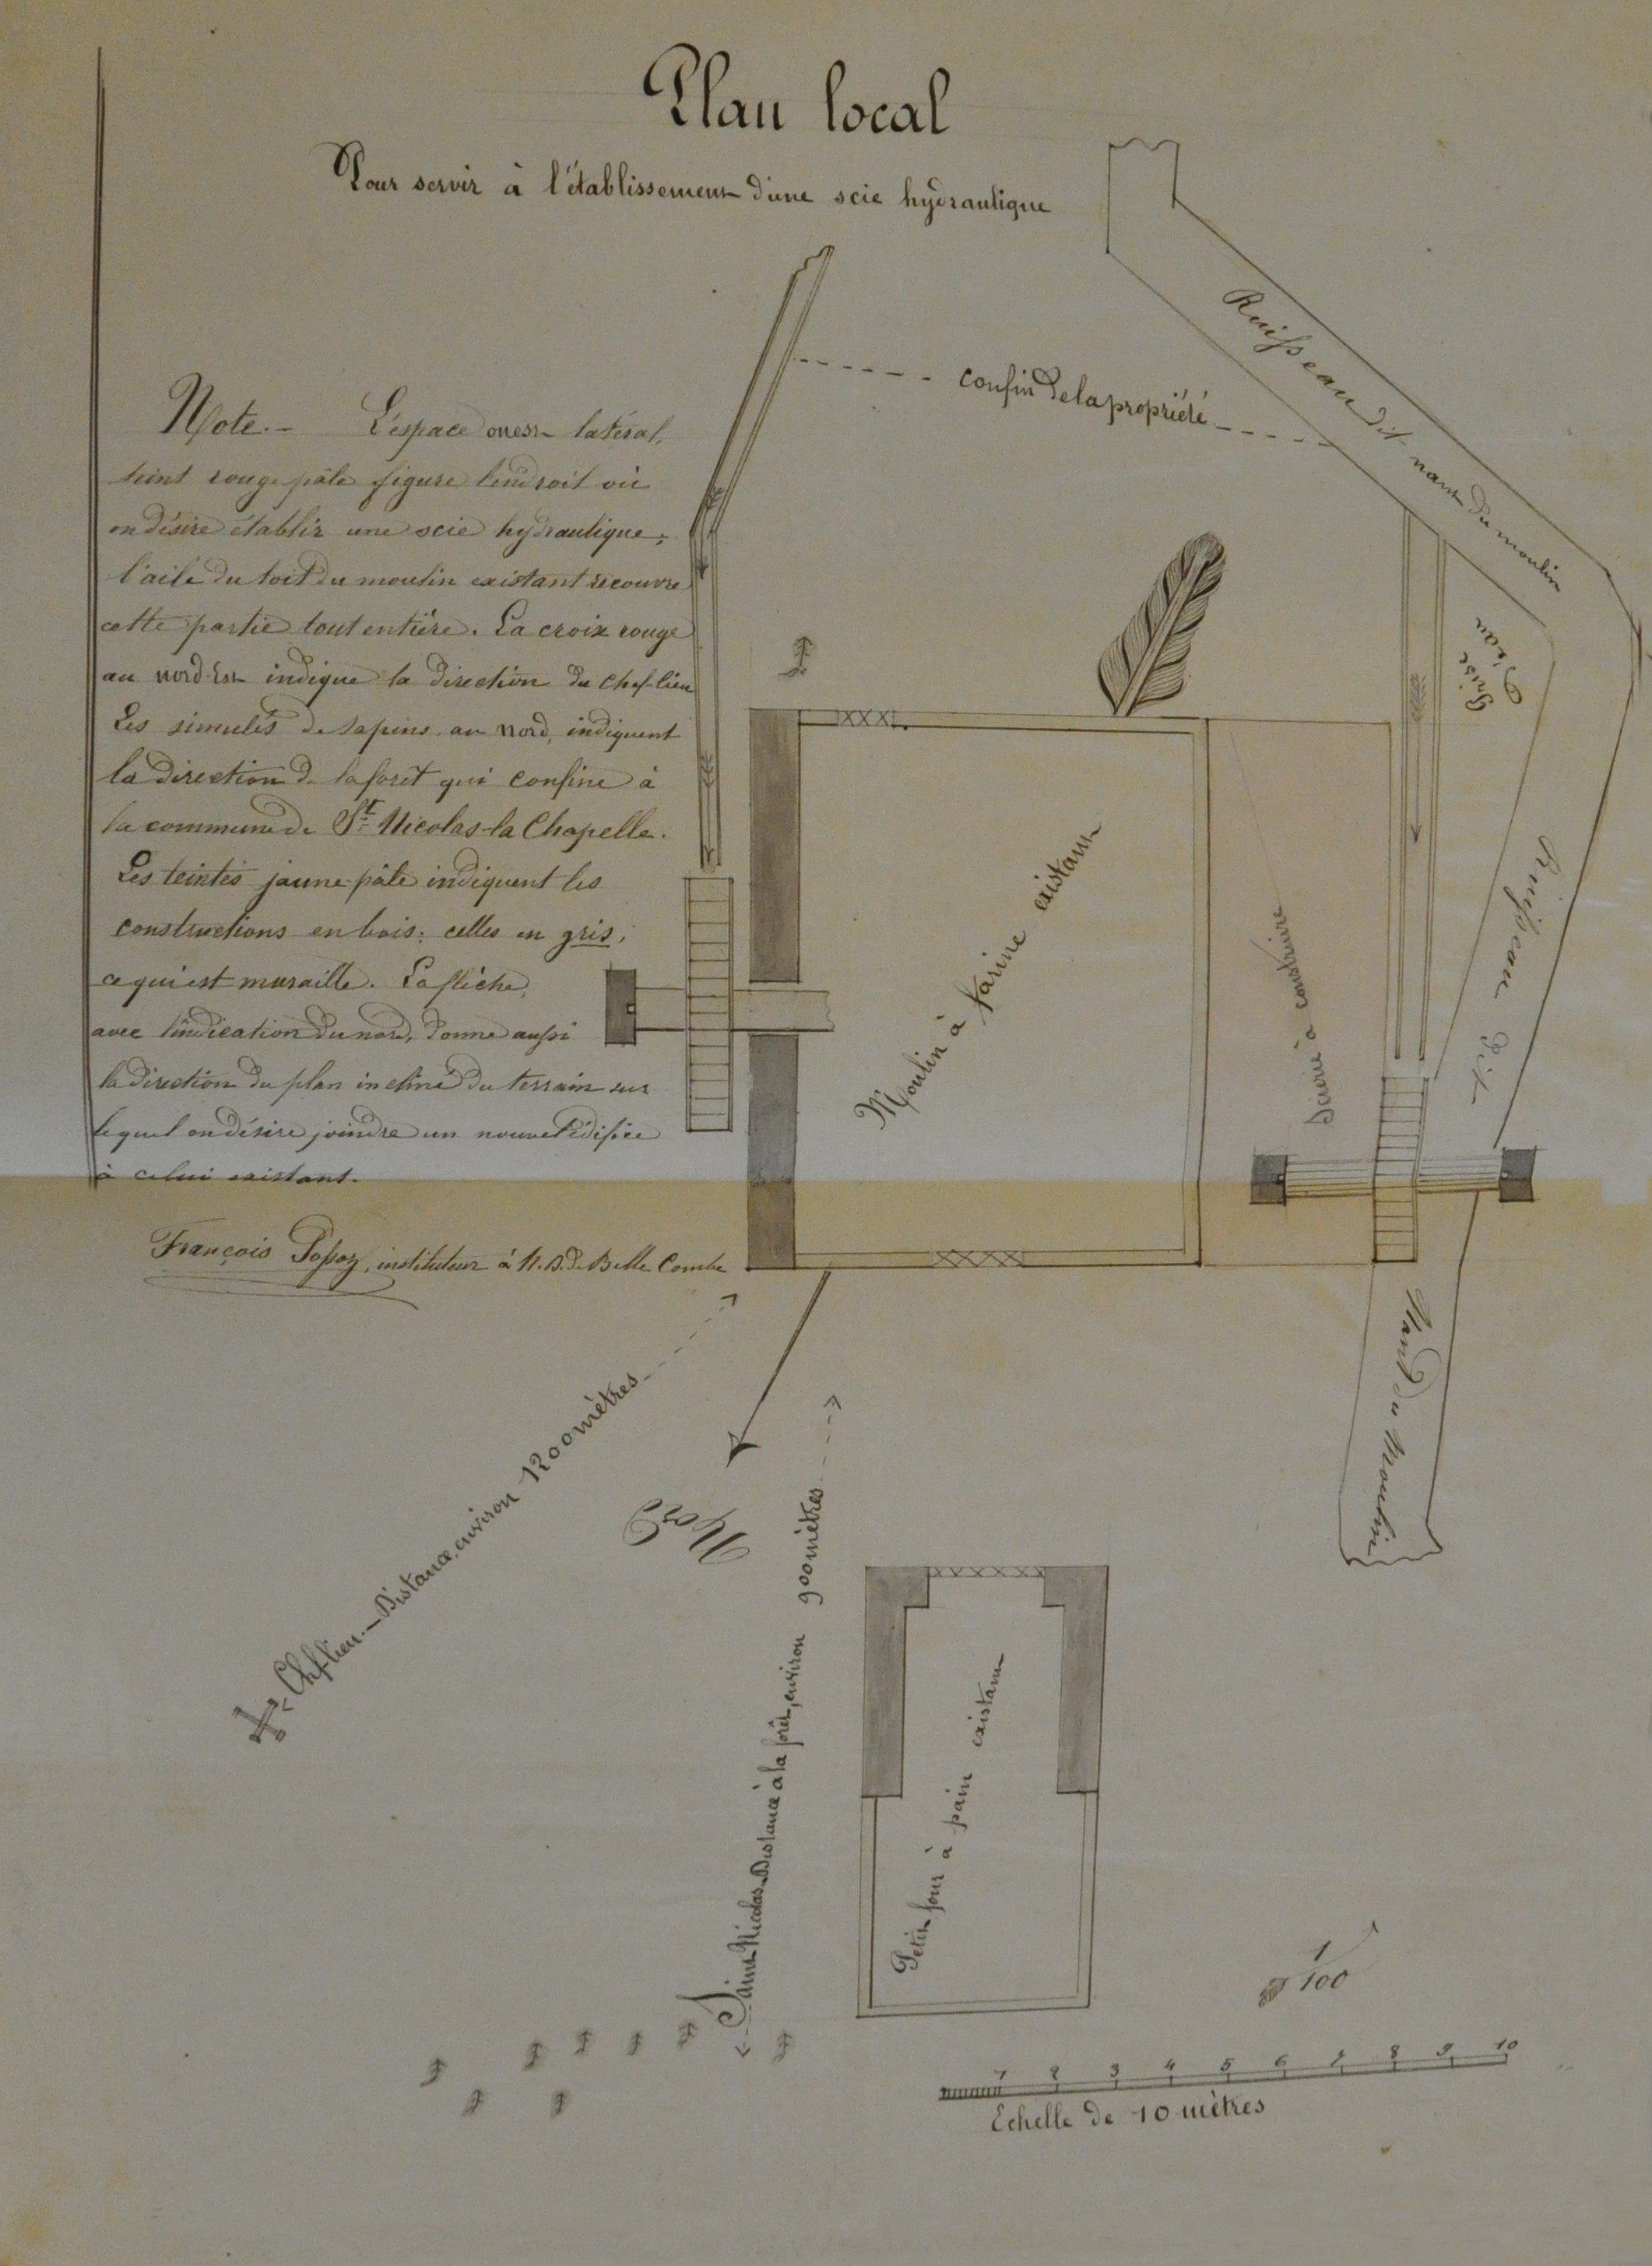 Plan local
Pour servir à l'établissement d'une scie hydraulique
Ruisseau dit nant du moulin
confin de la propriété
Note.- L'espace ouest latéral,
teint rouge pâle figure l'endroit où
on désire établir une scie hydraulique;
l'aile du toit du moulin existant recouvre
cette partie tout entière. La croix rouge
au nord-Est indique la direction du Chef-lieu
Les simulés de sapins au nord, indiquent
la direction de la forêt qui confine à
la commune de St Nicolas-la Chapelle.
Les teintes jaune-pâle indiquent les
constructions en bois; celles en gris,
ce qui est muraille. La flèche,
avec l'indication du nord, donne aussi
la direction du plan incliné du terrain sur
lequel on désire joindre un nouvel édifice
à celui existant.
François , instituteur à N.D. de Belle Combe
Prise
d'eau
Moulin à farine existant
Scierie à construire
Ruisseau dit
Nant du Moulin
Chef-lieu.- Distance, environ 1200 mètres
Nord
Saint-Nicolas-Distance à la forêt, environ 900 mètres
Petit four à pain existant
1/100
1 2 3 4 5 6 7 8 9 10
Echelle de 10 mètres